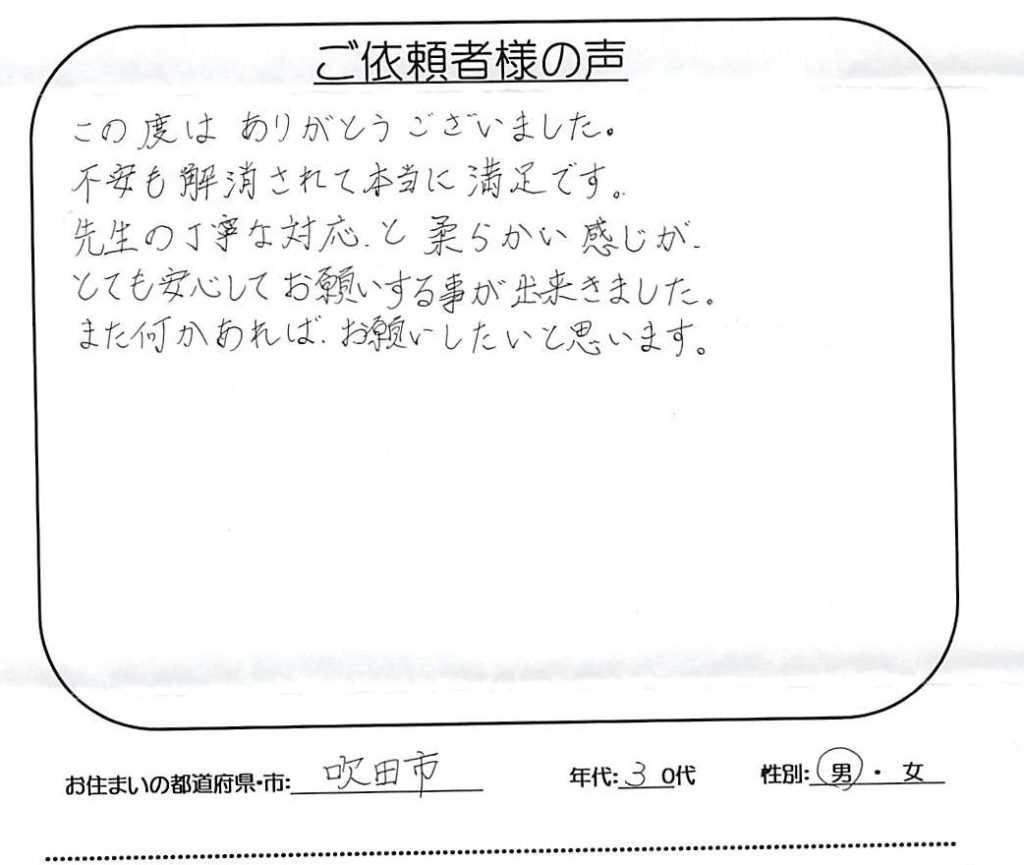 ご依頼者様の声
この度は ありがとうございました。
不安も解消されて本当に満足です。
先生の丁寧な対応、と柔らかい感じが、
とても安心してお願いする事が出来きました。
また何かあれば、お願いしたいと思います。
お住まいの都道府県・市: 吹田市 年代: 30代 性別: 男・女